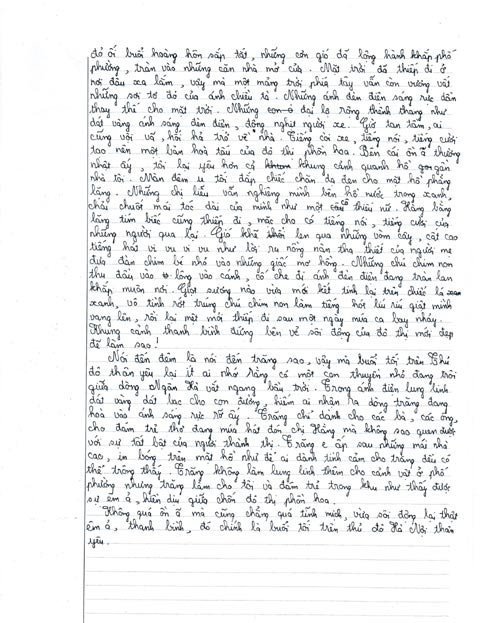 đỏ ối buổi hoàng hôn sắp tắt, những cơn gió đã lồng hành khắp phố
phường, tràn vào những căn nhà mở cửa. Mặt trời đã thiếp đi ở
nơi đâu xa lắm, vậy mà một mảng trời phía tây vẫn còn vương vất
những sợi tơ đỏ của ánh chiều tà. Những ánh đèn điện sáng rực dần
thay thế cho mặt trời. Những con đại lộ rộng thênh thang như
dát vàng ánh sáng đèn điện, đông nghịt người xe. Giờ tan tầm, ai
cũng vội vã, hối hả trở về nhà. Tiếng còi xe, tiếng nói, tiếng cười
tạo nên một bản hoà tấu của đô thị phồn hoa. Bên cái ồn ã thường
nhật ấy, tôi lại yêu hơn cả khung cảnh quanh hồ gần
nhà tôi. Màn đêm u tối đắp chiếc chăn dạ đen cho mặt hồ phẳng
lặng. Những chị liễu vẫn nghiêng mình bên hồ nước trong xanh,
chải chuốt mái tóc dài của mình như một cô thiếu nữ. Hàng bằng
lăng tím biếc cũng thiếp đi, mặc cho có tiếng nói, tiếng cười của
những người qua lại. Gió khẽ len qua những vòm cây, cất cao
tiếng hát vi vu vi vu như lời ru nồng nàn tha thiết của người mẹ
đưa đàn chim bé nhỏ vào những giấc mơ hồng. Những chú chim non
thu đầu vào lông vào cánh, cố che đi ánh đèn điện đang tràn lan
khắp muôn nơi. Giọt sương nào vừa mới kết tinh lại trên chiếc lá
xanh, vô tình rớt trúng chú chim non làm tiếng hót líu ríu giật mình
vang lên, rồi lại mệt mỏi thiếp đi sau một ngày múa ca bay nhảy.
Khung cảnh thanh bình đứng bên vẻ sôi động của đô thị mới đẹp
đẽ làm sao!
Nói đến đêm là nói đến trăng sao, vậy mà buổi tối trên Thủ
đô thân yêu lại ít ai nhớ rằng có một con thuyền nhỏ đang trôi
giữa dòng Ngân Hà vắt ngang bầu trời. Trong ánh điện lung linh
dát vàng dát bạc cho con đường, hiếm ai nhận ra dòng trăng đang
hoà vào ánh sáng rực rỡ ấy. Trăng chỉ dành cho các bà, các ông,
cho đám trẻ thơ đang múa hát đón chị Hằng mà không sao quen được
với sự tất bật của người thành thị. Trăng e ấp sau những mái nhà
cao, in bóng trên mặt hồ như để ai dành tình cảm cho trăng đều có
thể trông thấy. Trăng không làm lung linh thêm cho cảnh vật ở phố
phường nhưng trăng làm cho tôi và đám trẻ trong khu như thấy được
sự êm ả, hiền dịu giữa chốn đô thị phồn hoa.
Không quá ồn ã mà cũng chẳng quá tĩnh mịch, vừa sôi động lại thật
êm ả, thanh bình, đó chính là buổi tối trên thủ đô Hà Nội thân
yêu.